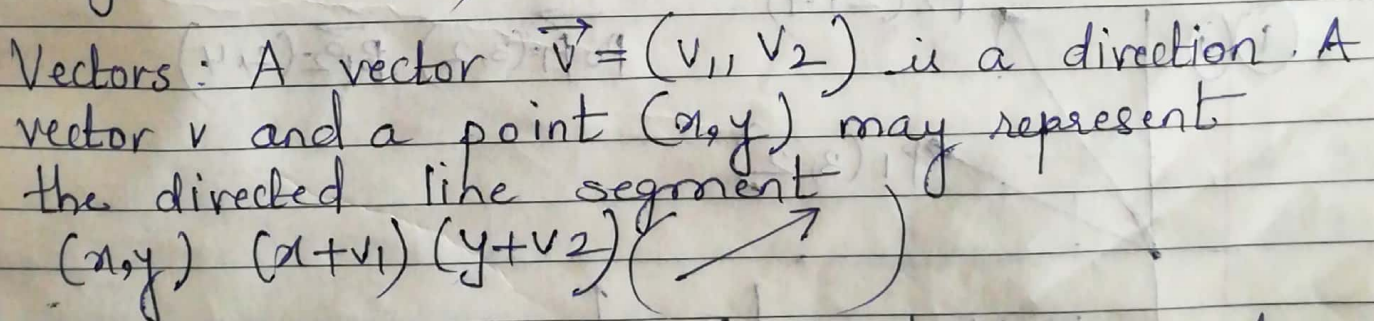 Vectors : A vector v⃗ = (v₁, v₂) is a direction. A
vector v and a point (x,y) may represent
the directed line segment
(x,y) (x+v₁) (y+v₂) ( )